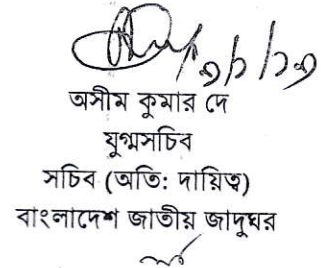 অসীম কুমার দে
যুগ্মসচিব
সচিব (অতি: দায়িত্ব)
বাংলাদেশ জাতীয় জাদুঘর